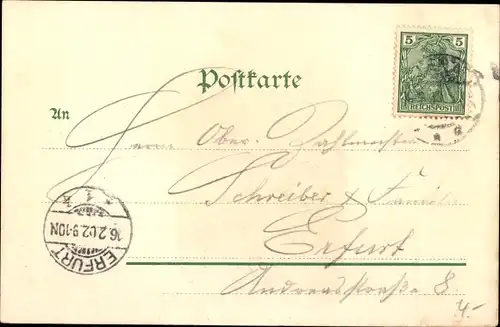 5 5
REICHSPOST
Postkarte
An
Herrn Ober-Zahlmeister
Schreiber & Familie
Erfurt
Andreasstraße 8.
* 1 k
16.2.02.9-10N
ERFURT
4.-